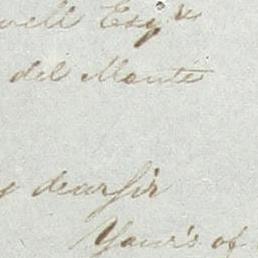 well Esqr
del Monte
y dear sir
Your's of